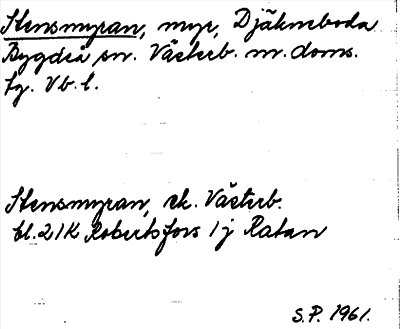 Stensmyran, myr, Djäkneboda
Bygdeå sn. Västerb. m. doms.
tg. Vb. l.
Stensmyran, ek. Västerb.
bl. 21K Robertsfors 1j Ratan
S.P. 1961.